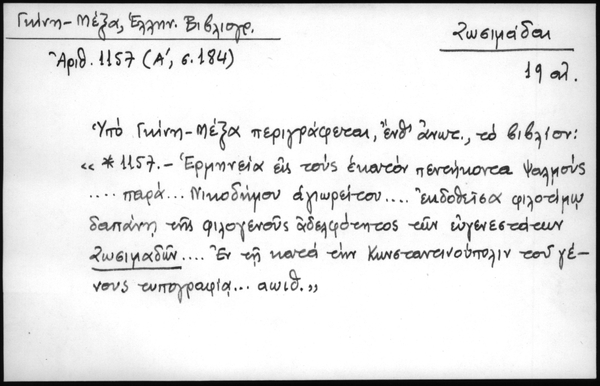 Γκίνη-Μέξα, Ἑλλην. Βιβλιογρ.
Ζωσιμάδαι
Ἀριθ. 1157 (Α΄, σ. 184)
19 αἰ.
Ὑπό Γκίνη-Μέξα περιγράφεται, ἔνθ' ἀνωτ., τό βιβλίον:
«*1157.- Ἑρμηνεία εἰς τούς ἑκατόν πεντήκοντα Ψαλμούς
.... παρά... Νικοδήμου ἁγιωρείτου.... ἐκδοθεῖσα φιλοτίμῳ
δαπάνῃ τῆς φιλογενοῦς ἀδελφότητος τῶν εὐγενεστάτων
Ζωσιμαδῶν.... Ἐν τῇ κατά τήν Κωνσταντινούπολιν τοῦ γέ-
νους τυπογραφίᾳ... αωιθ.»